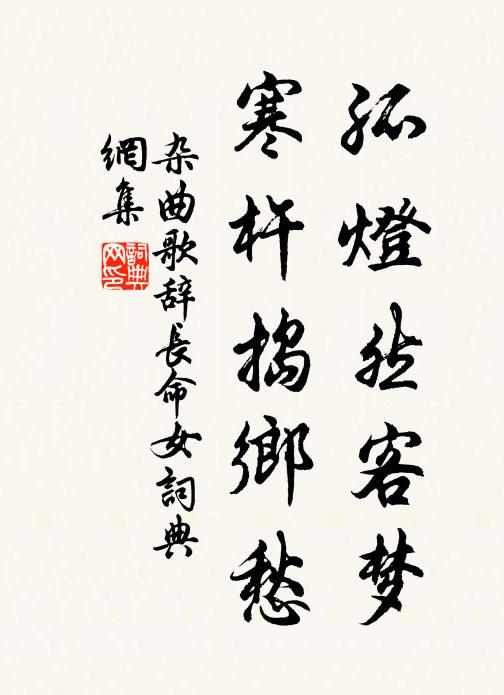 孤燈然客梦
寒杵搗鄉愁
杂曲歌辞長命女詞典
網集
詞典网印